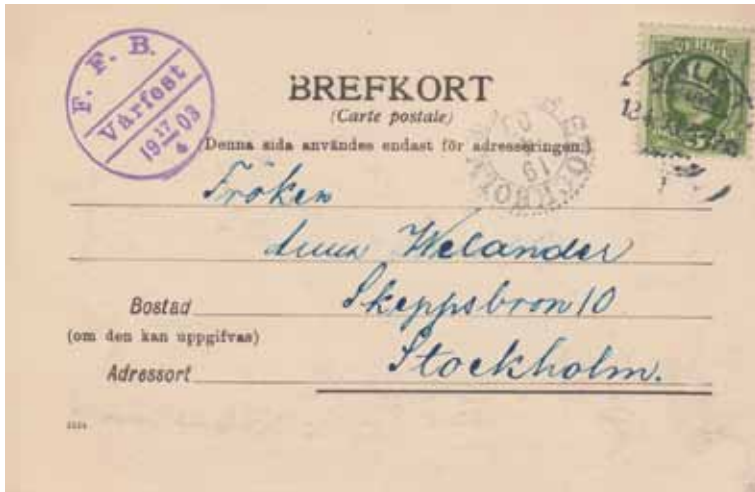 F. F. B.
Vårfest
19 17/6 03
BREFKORT
(Carte postale)
Denna sida användes endast för adresseringen.)
STOCKHOLM
SVERIGE
Fröken
Anna Welander
Bostad Skeppsbron 10
(om den kan uppgifvas)
Adressort Stockholm.